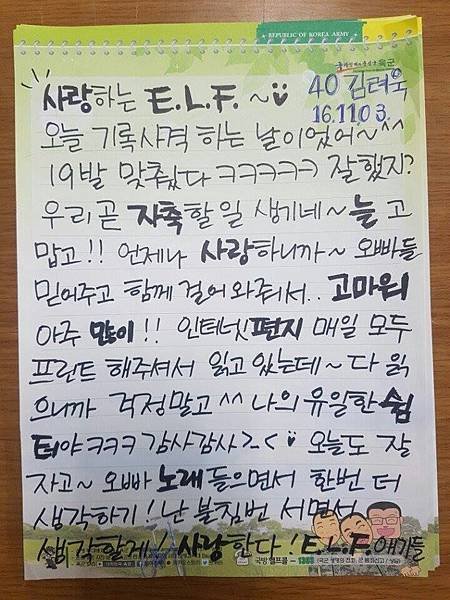 REPUBLIC OF KOREA ARMY
육군
40 김려욱
16.11.03.
사랑하는 E.L.F. ~
오늘 기록사격 하는 날이었어~^^
19발 맞췄다 ㅋㅋㅋㅋㅋ 잘했지?
우리곧 자축할 일 생기네~ 늘 고
맙고!! 언제나 사랑하니까~ 오빠들
믿어주고 함께 걸어와줘서.. 고마워
아주 많이!! 인터넷편지 매일 모두
프린트 해주셔서 읽고있는데~ 다 읽
으니까 걱정말고 ^^ 나의 유일한 쉼
터야 ㅋㅋㅋ 감사감사 >.< 오늘도 잘
자고~ 오빠 노래 들으면서 한번 더
생각하기! 난 불침번 서면서
생각할게! 사랑한다! E.L.F. 애기들
국방헬프콜 - 1303